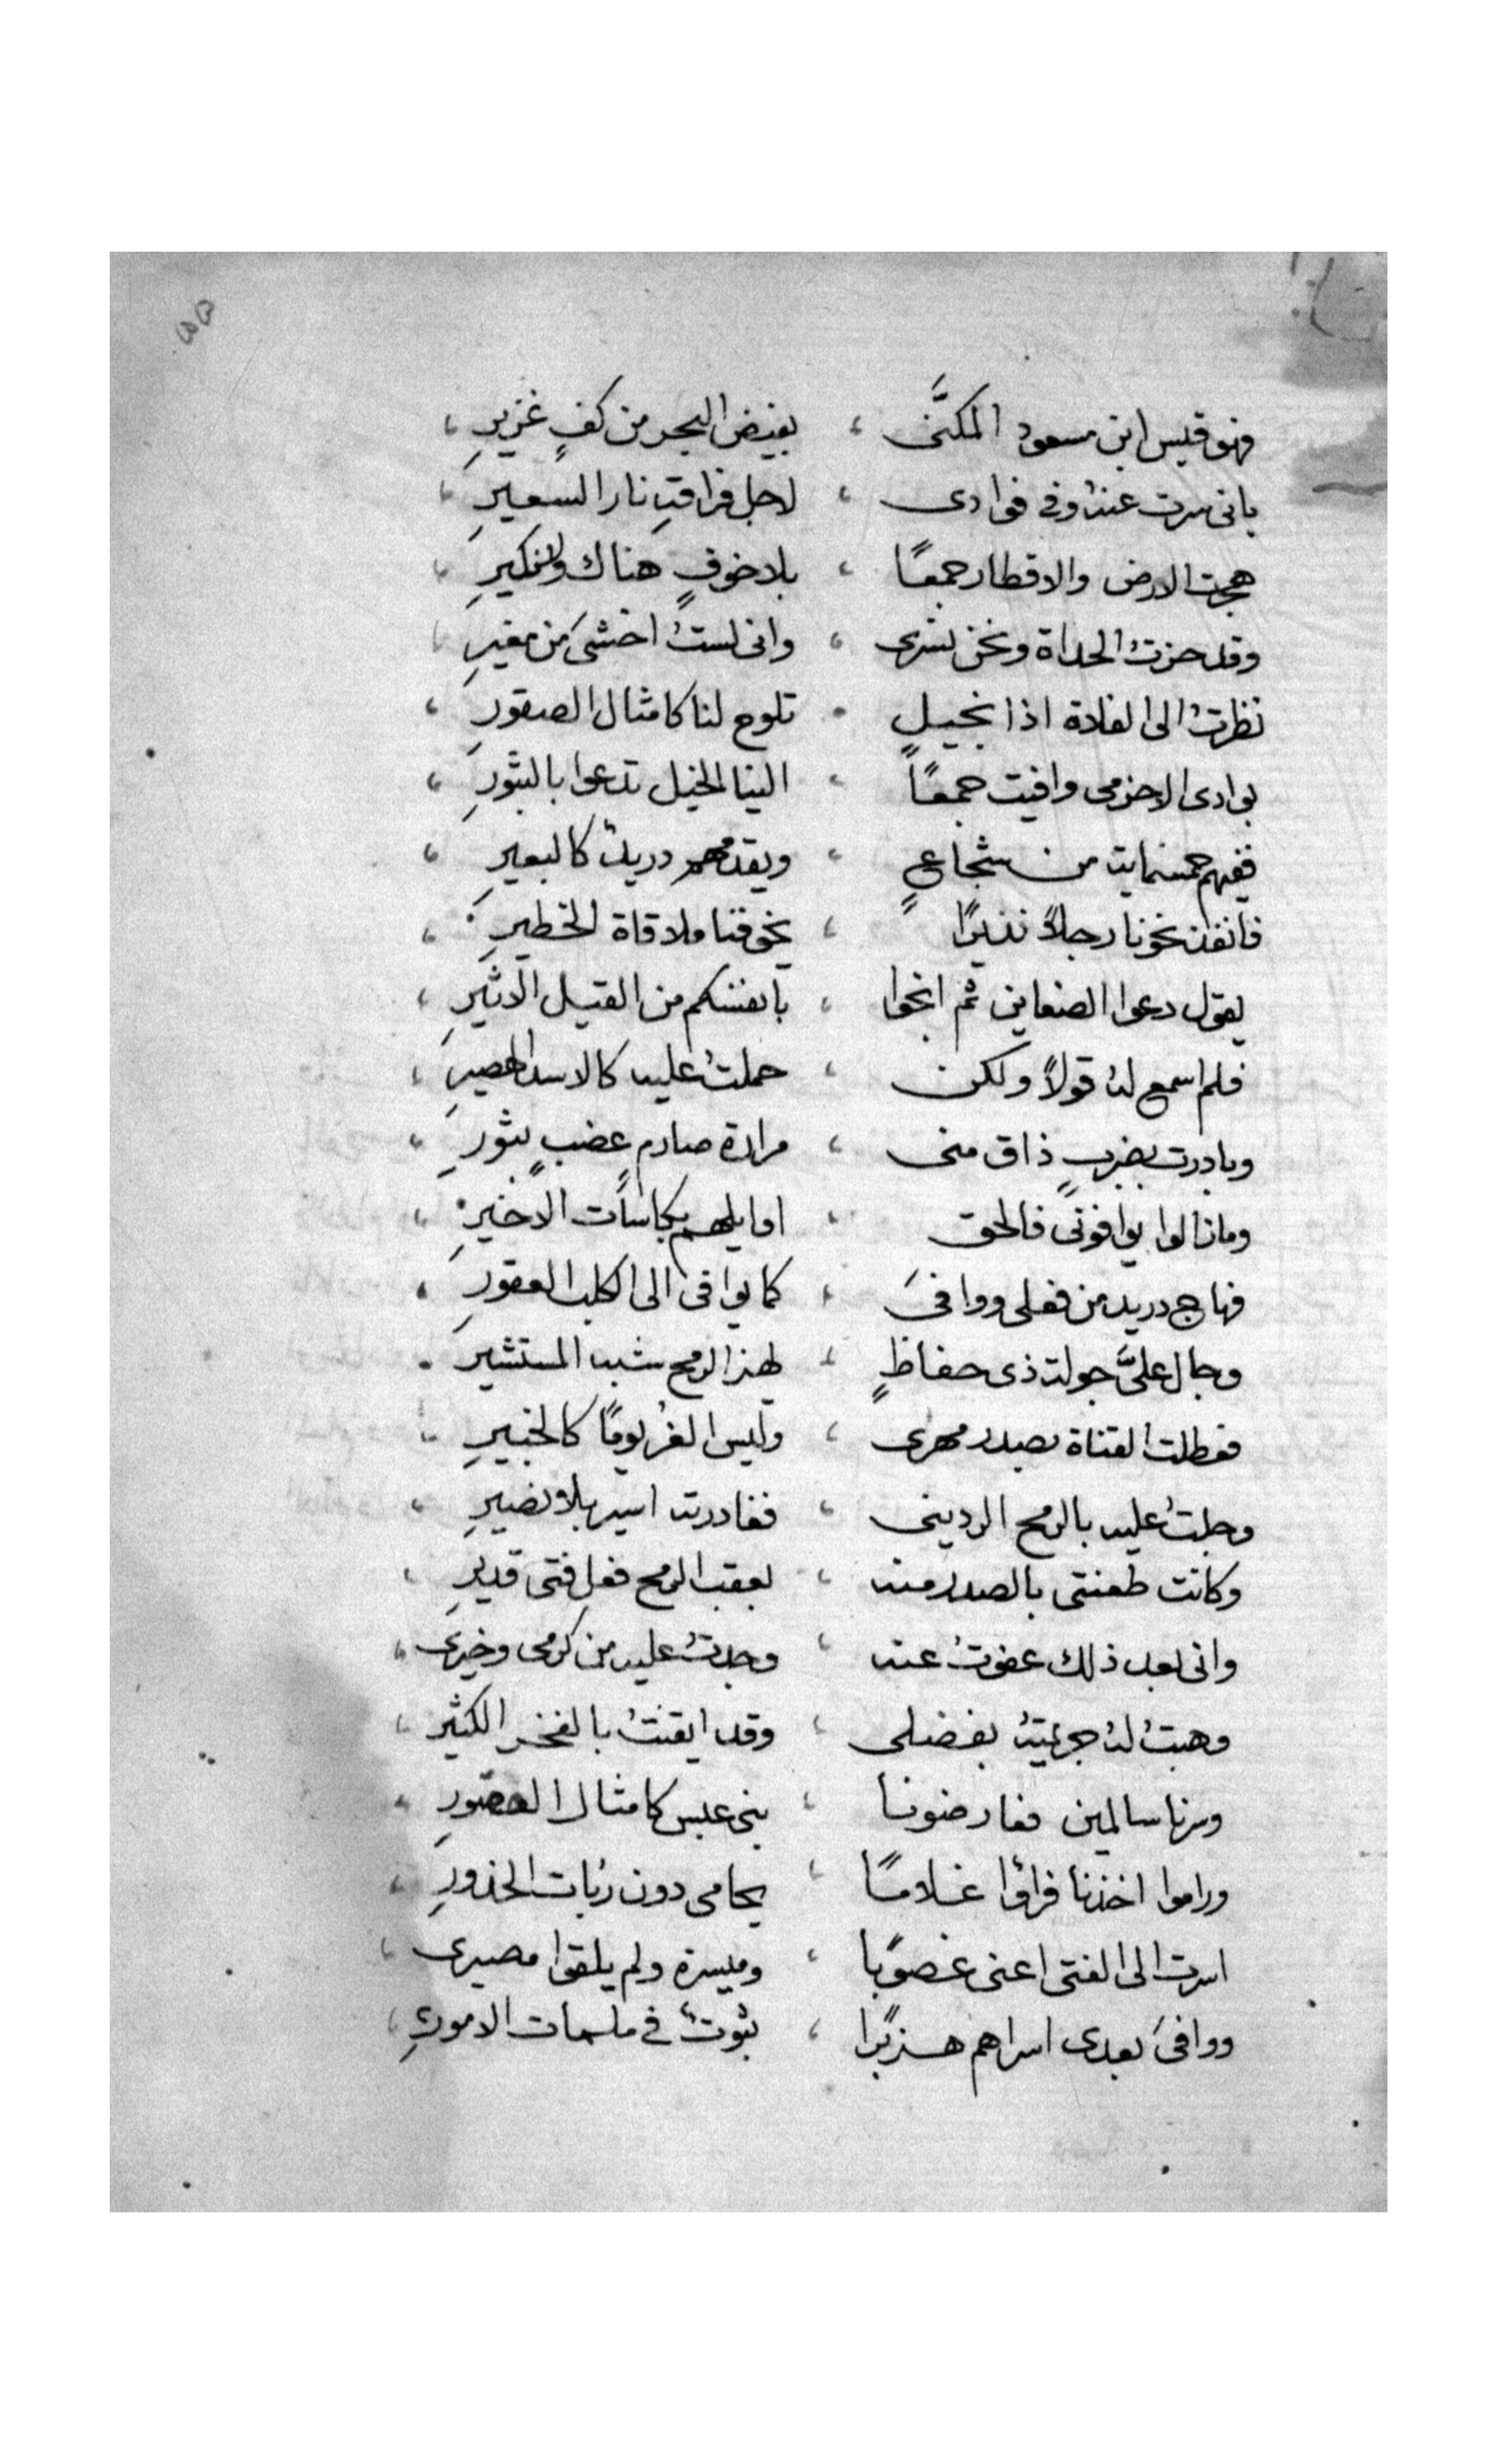 فهو قيس ابن مسعود المكنَّى ، بفيض البحر من كفٍ غزيرِ ،
بانى سرت عنهُ وفى فوادى ، لاجل فراقهِ نار السعيرِ ،
هجرت الارض والاقطار جمعًا ، بلا خوفٍ هناك ولانكيرِ ،
وقد حزتُ الحداة ونحن نسرى ، وانى لستُ اخشىَ من مغيرِ
نظرتُ الى الفلاة اذا بخيلٍ ، تلوح لنا كامثال الصقورِ ،
بوادى الاخرمى وافيت جمعًا ، الينا الخيل تدعوا بالثبورِ ،
ففيهم خمسمايه من شجاعٍ ، ويقدمهم دريدُ كالبعيرِ ،
فانفذ نحونا رجلاً نذيرًا ، يخوفنا ملاقاة الخطيرِ ،
يقول دعوا الضعاين ثم انجوا ، بانفسكم من القتيل الاثيرِ ،
فلم اسمع لهُ قولاً ولكن ، حملتُ عليه كالاسد الهصيرِ ،
وبادرته بضربٍ ذاق منى ، مرارة صارمٍ عضبٍ بثورِ ،
ومازالوا يوافونى فالحق ، اوايلهم بكاسات الاخيرِ ،
فهاج دريد من فعلى ووافىَ ، كما يوافى الى الكلب العقورِ ،
وجال علىَّ جولة ذى حفاظٍ ، لهز الرمح شبه المستشيرِ ،
فعطلت القناة بصدر مهرى ، وليس الغرُ يومًا كالخبيرِ ،
وجلتُ عليه بالرمح الردينى ، فغادرته اسير بلا نصيرِ ،
وكانت طعنتى بالصدر منه ، بعقب الرمح فعل فتى قديرِ ،
وانى بعد ذلك عفوتُ عنه ، وجدتُ عليه من كرمى وخيرى ،
وهبتُ لهُ جريمتهُ بفضلى ، وقد ايقنتُ بالفخر الكثيرِ ،
وسرنا سالمين فعارضونا ، بنى عبس كامثال
وراموا اخذنا فراوا غلامًا ، يحامى دون ربات الخدورِ ،
اسرت الى الفتى اعنى غصوبًا ، وميسرة ولم يلقوا مصيرى ،
ووافىَ بعدى اسراهم هزبرًا ، بثوتٌ فى ملمات الامورىِ ،